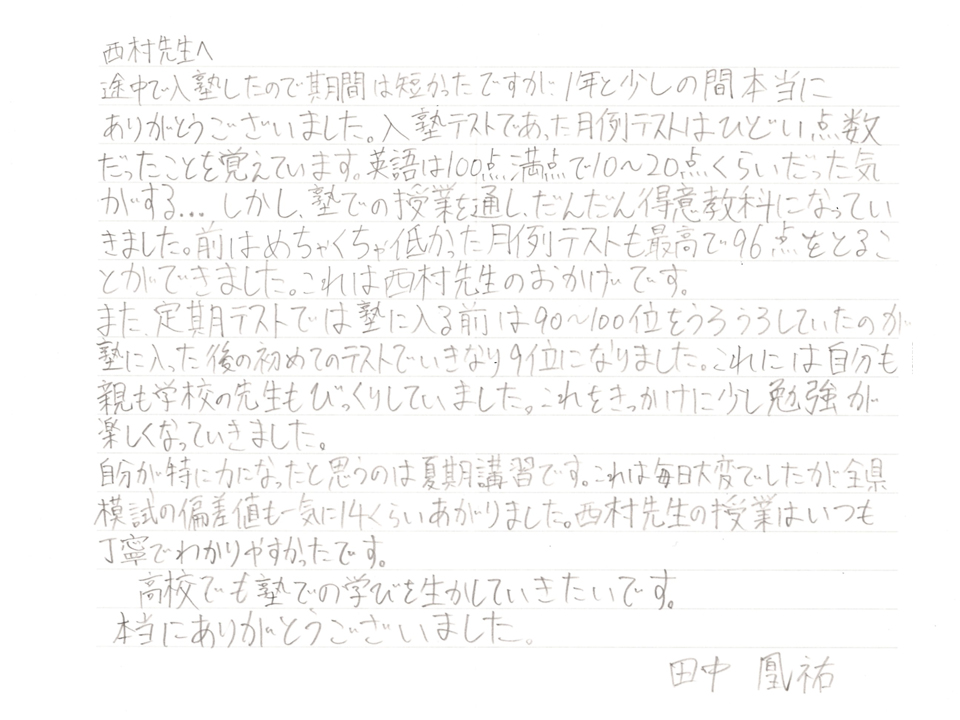 西村先生へ
途中で入塾したので期間は短かったですが、1年と少しの間本当に
ありがとうございました。入塾テストであった月例テストはひどい点数
だったことを覚えています。英語は100点満点で10～20点くらいだった気
がする... しかし、塾での授業を通し、だんだん得意教科になってい
きました。前はめちゃくちゃ低かった月例テストも最高で96点をとるこ
とができました。これは西村先生のおかげです。
また、定期テストでは塾に入る前は90～100位をうろうろしていたのが
塾に入った後の初めてのテストでいきなり9位になりました。これには自分も
親も学校の先生もびっくりしていました。これをきっかけに少し勉強が
楽しくなっていきました。
自分が特に力になったと思うのは夏期講習です。これは毎日大変でしたが、全県
模試の偏差値も一気に14くらいあがりました。西村先生の授業はいつも
丁寧でわかりやすかったです。
高校でも塾での学びを生かしていきたいです。
本当にありがとうございました。
田中 凰祐